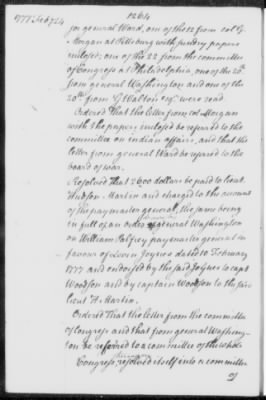 1777 Feb 24
1264
for general Ward, one of the 12 from col G.
Morgan at Pittsburg with sundry papers
enclosed; one of the 22 from the committee
of Congress at Philadelphia, one of the 20th
from general Washington and one of the
20th from G Walton esqr were read.
Ordered That the letter from col Morgan
with the papers enclosed be referred to the
committee on indian affairs, and that the
letter from general Ward be referred to the
board of war.
Resolved That 2600 dollars be paid to lieut.
Hudson Martin and charged to the account
of the paymaster general, the same being
in full of an order of general Washington
on William Palfrey paymaster general in
favour of Joynes dated 10 February
1777 and endorsed by the said Joynes to capt
Woodson and by captain Woodson to the said
lieut H Martin.
Ordered That the letter from the committee
of Congress and that from general Washing-
ton be referred to a committee of the whole
Congress resolved itself into a committee
of